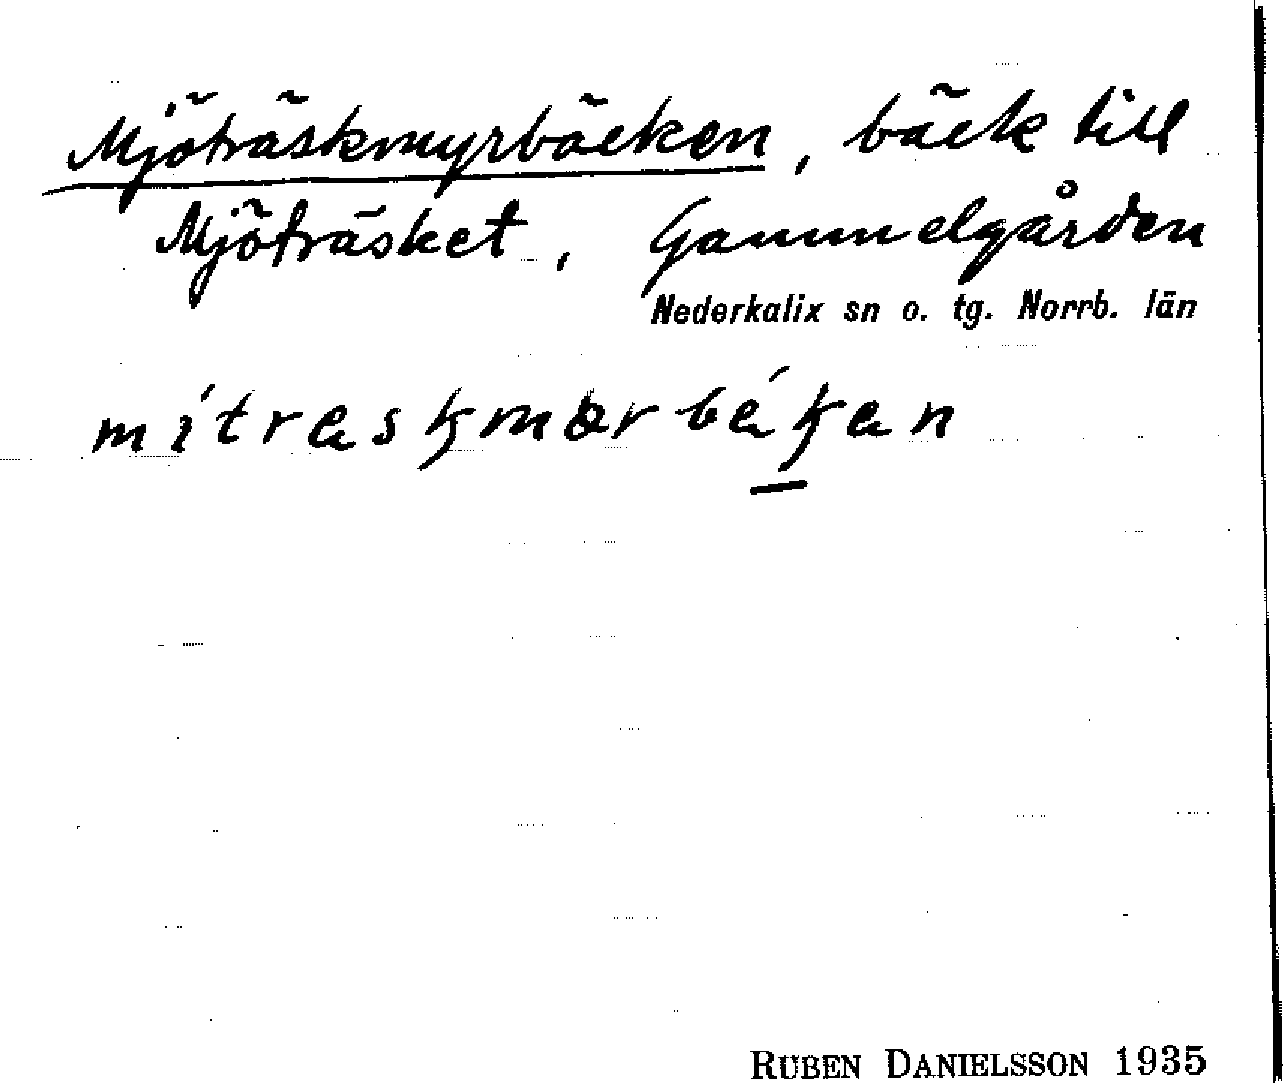 Mjöträskmyrbäcken, bäck till
Mjöträsket, Gammelgården
Nederkalix sn o. tg. Norrb. län
RUBEN DANIELSSON 1935